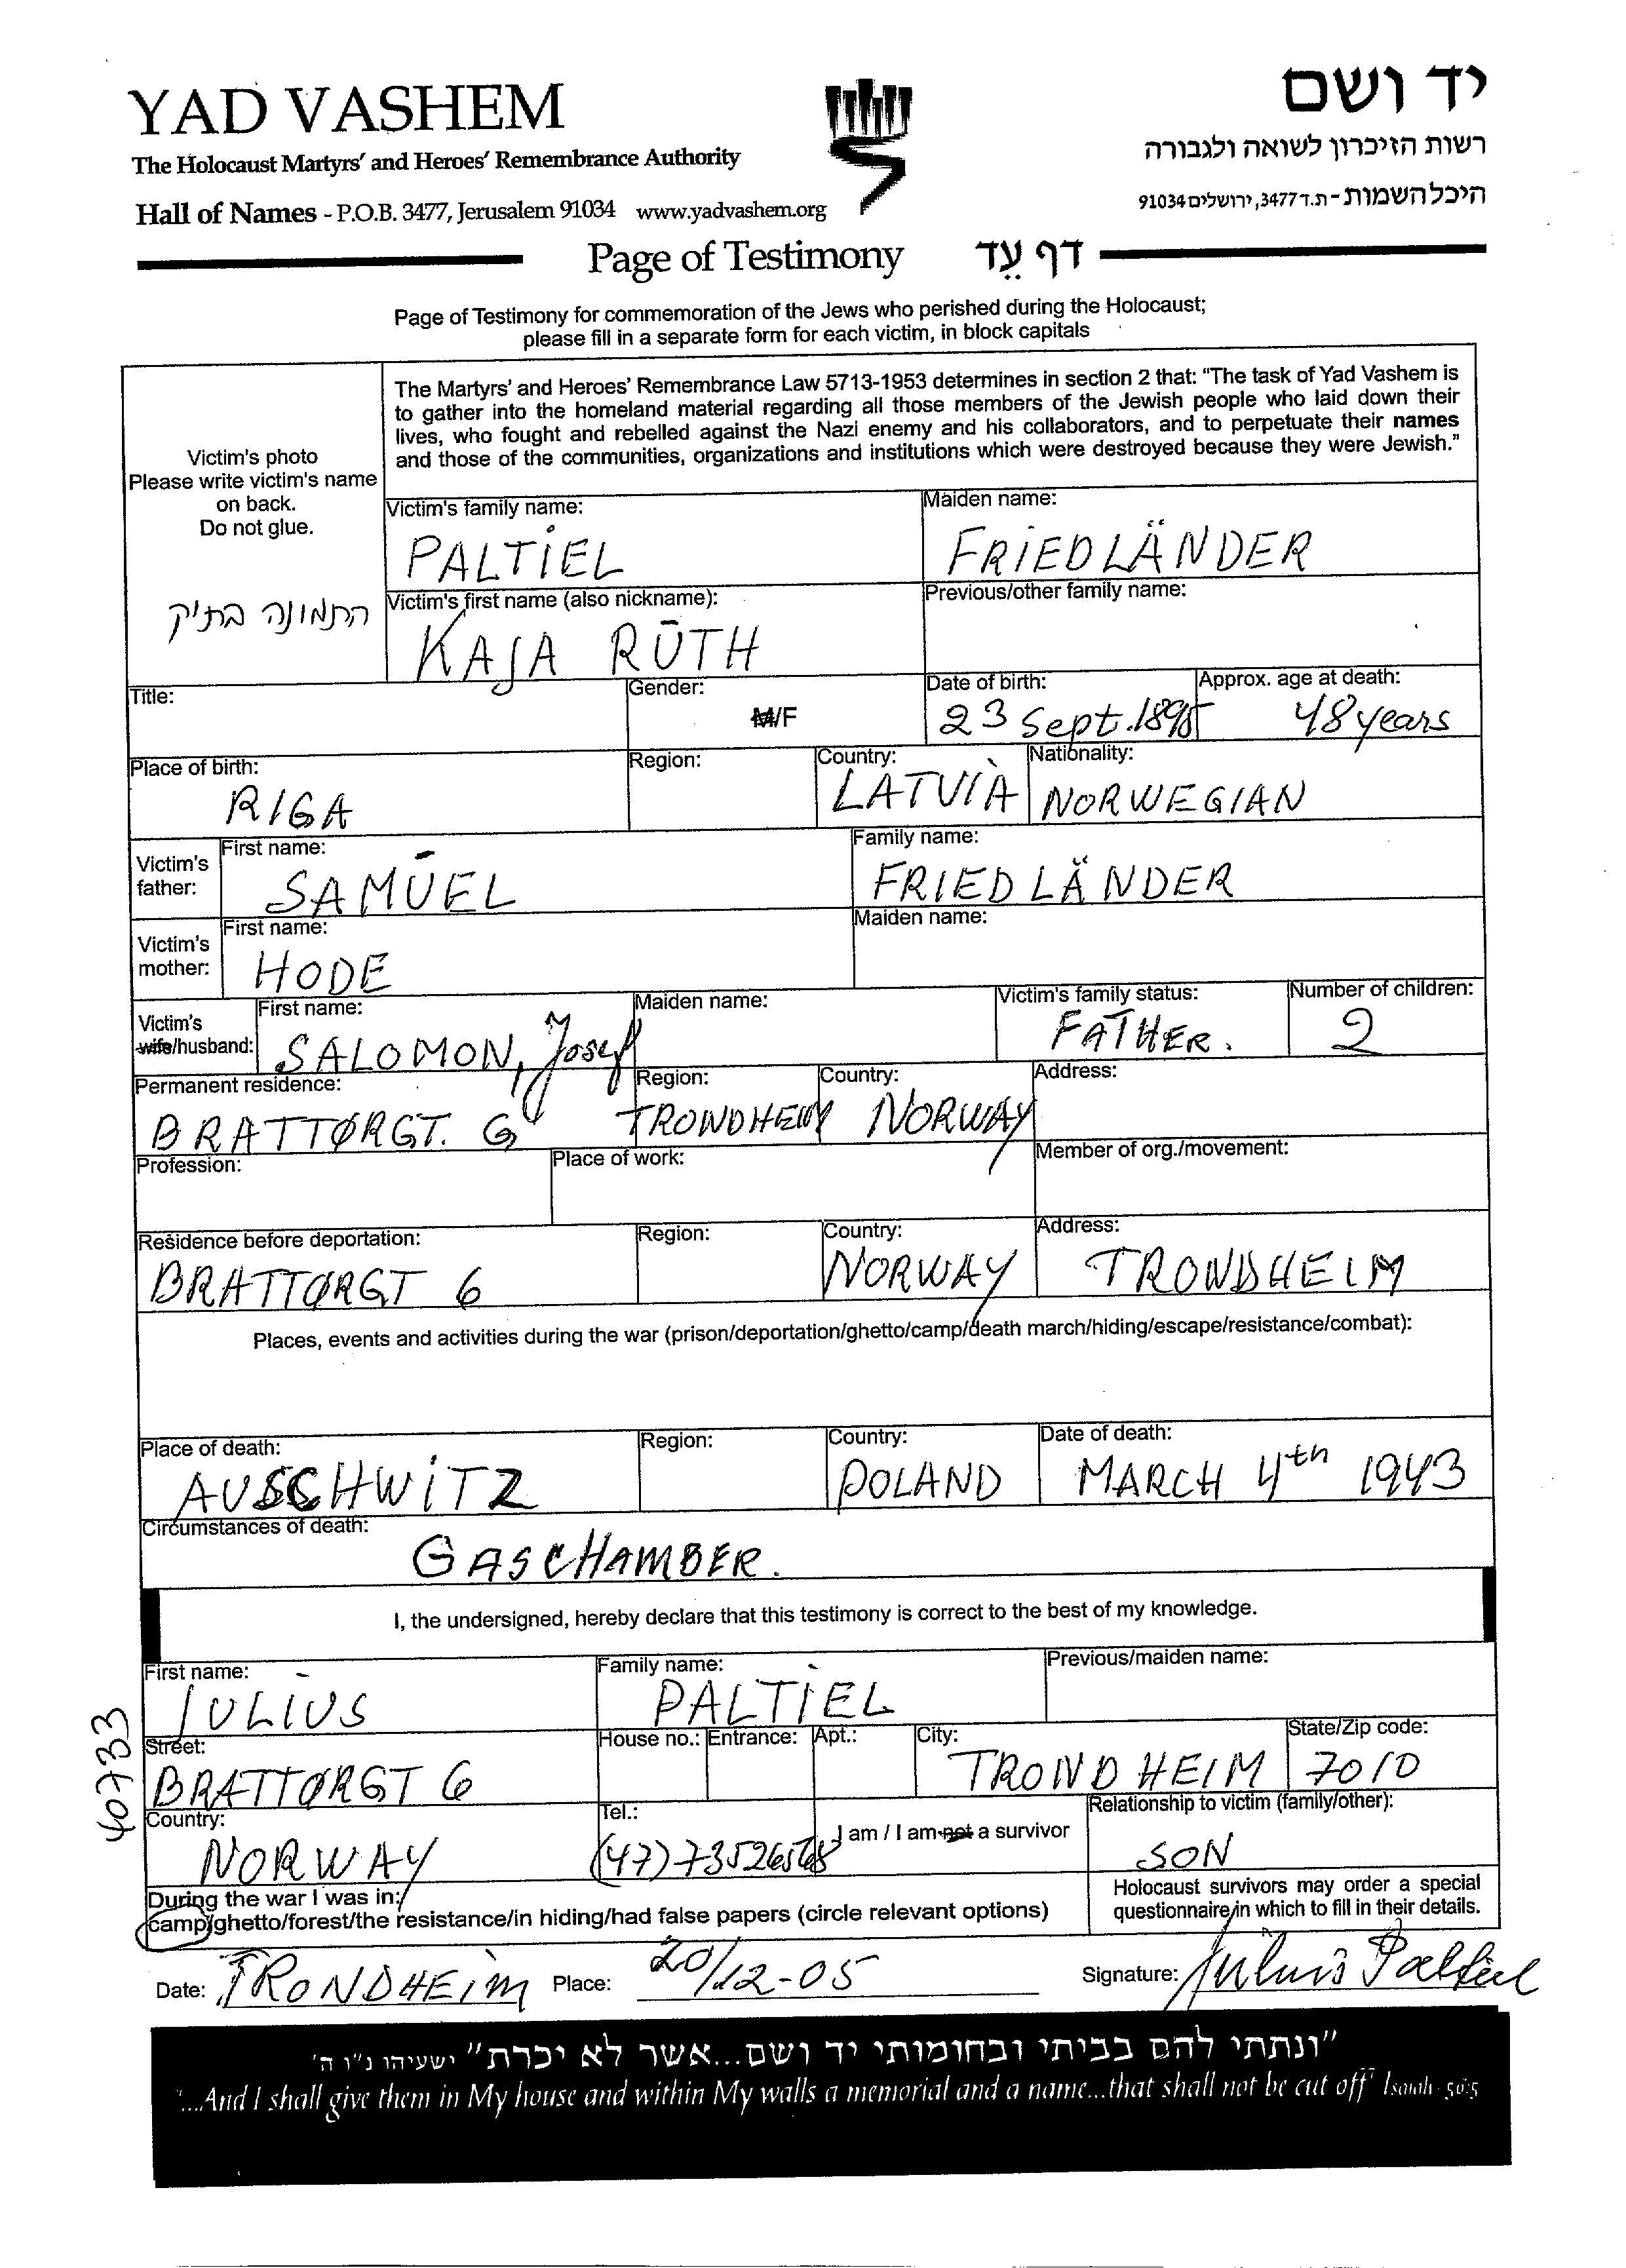 YAD VASHEM
יד ושם
The Holocaust Martyrs' and Heroes' Remembrance Authority
רשות הזיכרון לשואה ולגבורה
Hall of Names - P.O.B. 3477, Jerusalem 91034 www.yadvashem.org
היכל השמות - ת.ד 3477, ירושלים 91034
Page of Testimony דף עֵד
Page of Testimony for commemoration of the Jews who perished during the Holocaust;
please fill in a separate form for each victim, in block capitals
The Martyrs' and Heroes' Remembrance Law 5713-1953 determines in section 2 that: "The task of Yad Vashem is
to gather into the homeland material regarding all those members of the Jewish people who laid down their
lives, who fought and rebelled against the Nazi enemy and his collaborators, and to perpetuate their names
and those of the communities, organizations and institutions which were destroyed because they were Jewish."
Victim's photo
Please write victim's name
on back.
Do not glue.
התמונה בתיק
Victim's family name: Maiden name:
PALTIEL FRIEDLÄNDER
Victim's first name (also nickname): Previous/other family name:
KAJA RŪTH
Title: Gender: Date of birth: Approx. age at death:
M/F 23 Sept. 1895 48 years
Place of birth: Region: Country: Nationality:
RIGA LATVIA NORWEGIAN
Victim's father: First name: Family name:
SAMŪEL FRIEDLÄNDER
Victim's mother: First name: Maiden name:
HODE
Victim's wife/husband: First name: Maiden name: Victim's family status: Number of children:
SALOMON, Josef FATHER. 2
Permanent residence: Region: Country: Address:
BRATTØRGT. 6 TRONDHEIM NORWAY
Profession: Place of work: Member of org./movement:
Residence before deportation: Region: Country: Address:
BRATTØRGT 6 NORWAY TRONDHEIM
Places, events and activities during the war (prison/deportation/ghetto/camp/death march/hiding/escape/resistance/combat):
Place of death: Region: Country: Date of death:
AUSCHWITZ POLAND MARCH 4th 1943
Circumstances of death:
GASCHAMBER.
I, the undersigned, hereby declare that this testimony is correct to the best of my knowledge.
First name: Family name: Previous/maiden name:
JULIUS PALTIEL
Street: House no.: Entrance: Apt.: City: State/Zip code:
BRATTØRGT 6 TRONDHEIM 7010
40733
Country: Tel.: I am / I am not a survivor Relationship to victim (family/other):
NORWAY SON
During the war I was in:
camp/ghetto/forest/the resistance/in hiding/had false papers (circle relevant options)
Holocaust survivors may order a special
questionnaire in which to fill in their details.
Date: TRONDHEIM Place: 20/12-05 Signature: Julius Paltiel
"ונתתי להם בביתי ובחומותי יד ושם...אשר לא יכרת" ישעיהו נ"ו ה'
"...And I shall give them in My house and within My walls a memorial and a name...that shall not be cut off" Isaiah 56:5